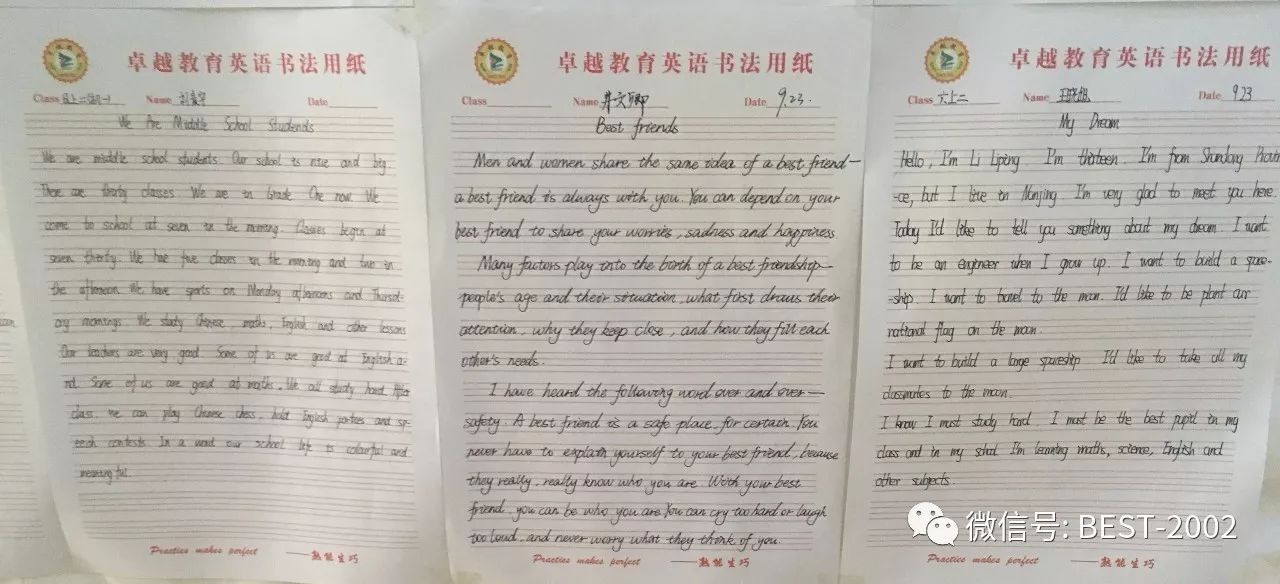 卓越教育英语书法用纸
Class
Name
Date
We Are Middle School Students
We are middle school students. Our school is nice and big.
There are thirty classes. We are in Grade One now. We
come to school at seven in the morning. Classes begin at
seven thirty. We have five classes in the morning and two in
the afternoon. We have sports on Monday afternoons and Thursd-
ay mornings. We study Chinese, maths, English and other lessons
Our teachers are very good. Some of us are good at English a-
nd. Some of us are good at maths. We all study hard. After
class, we can play Chinese chess, hold English parties and sp-
eech contests. In a word our school life is colourful and
meaningful.
Practice makes perfect ——熟能生巧
卓越教育英语书法用纸
Class
Name 井文卿
Date 9.23.
Best friends
Men and women share the same idea of a best friend—
a best friend is always with you. You can depend on your
best friend to share your worries, sadness and happiness
Many factors play into the birth of a best friendship—
people's age and their situation, what first draws their
attention, why they keep close, and how they fill each
other's needs.
I have heard the following word over and over—
safety. A best friend is a safe place, for certain. You
never have to explain yourself to your best friend, because
they really, really know who you are. With your best
friend, you can be who you are. You can cry too hard or laugh
too loud, and never worry what they think of you.
Practice makes perfect ——熟能生巧
卓越教育英语书法用纸
Class 六上二
Name
Date 9.23
My Dream
Hello, I'm Li Liping. I'm thirteen. I'm from Shandong Provin
-ce, but I live in Nanjing. I'm very glad to meet you here.
Today I'd like to tell you something about my dream. I want
to be an engineer when I grow up. I want to build a space-
-ship. I want to travel to the moon. I'd like to be plant our
national flag on the moon.
I want to build a large spaceship. I'd like to take all my
classmates to the moon.
I know I must study hard. I must be the best pupil in my
class and in my school. I'm learning maths, science, English and
other subjects.
Practice makes perfect ——熟能生巧
微信号: BEST-2002